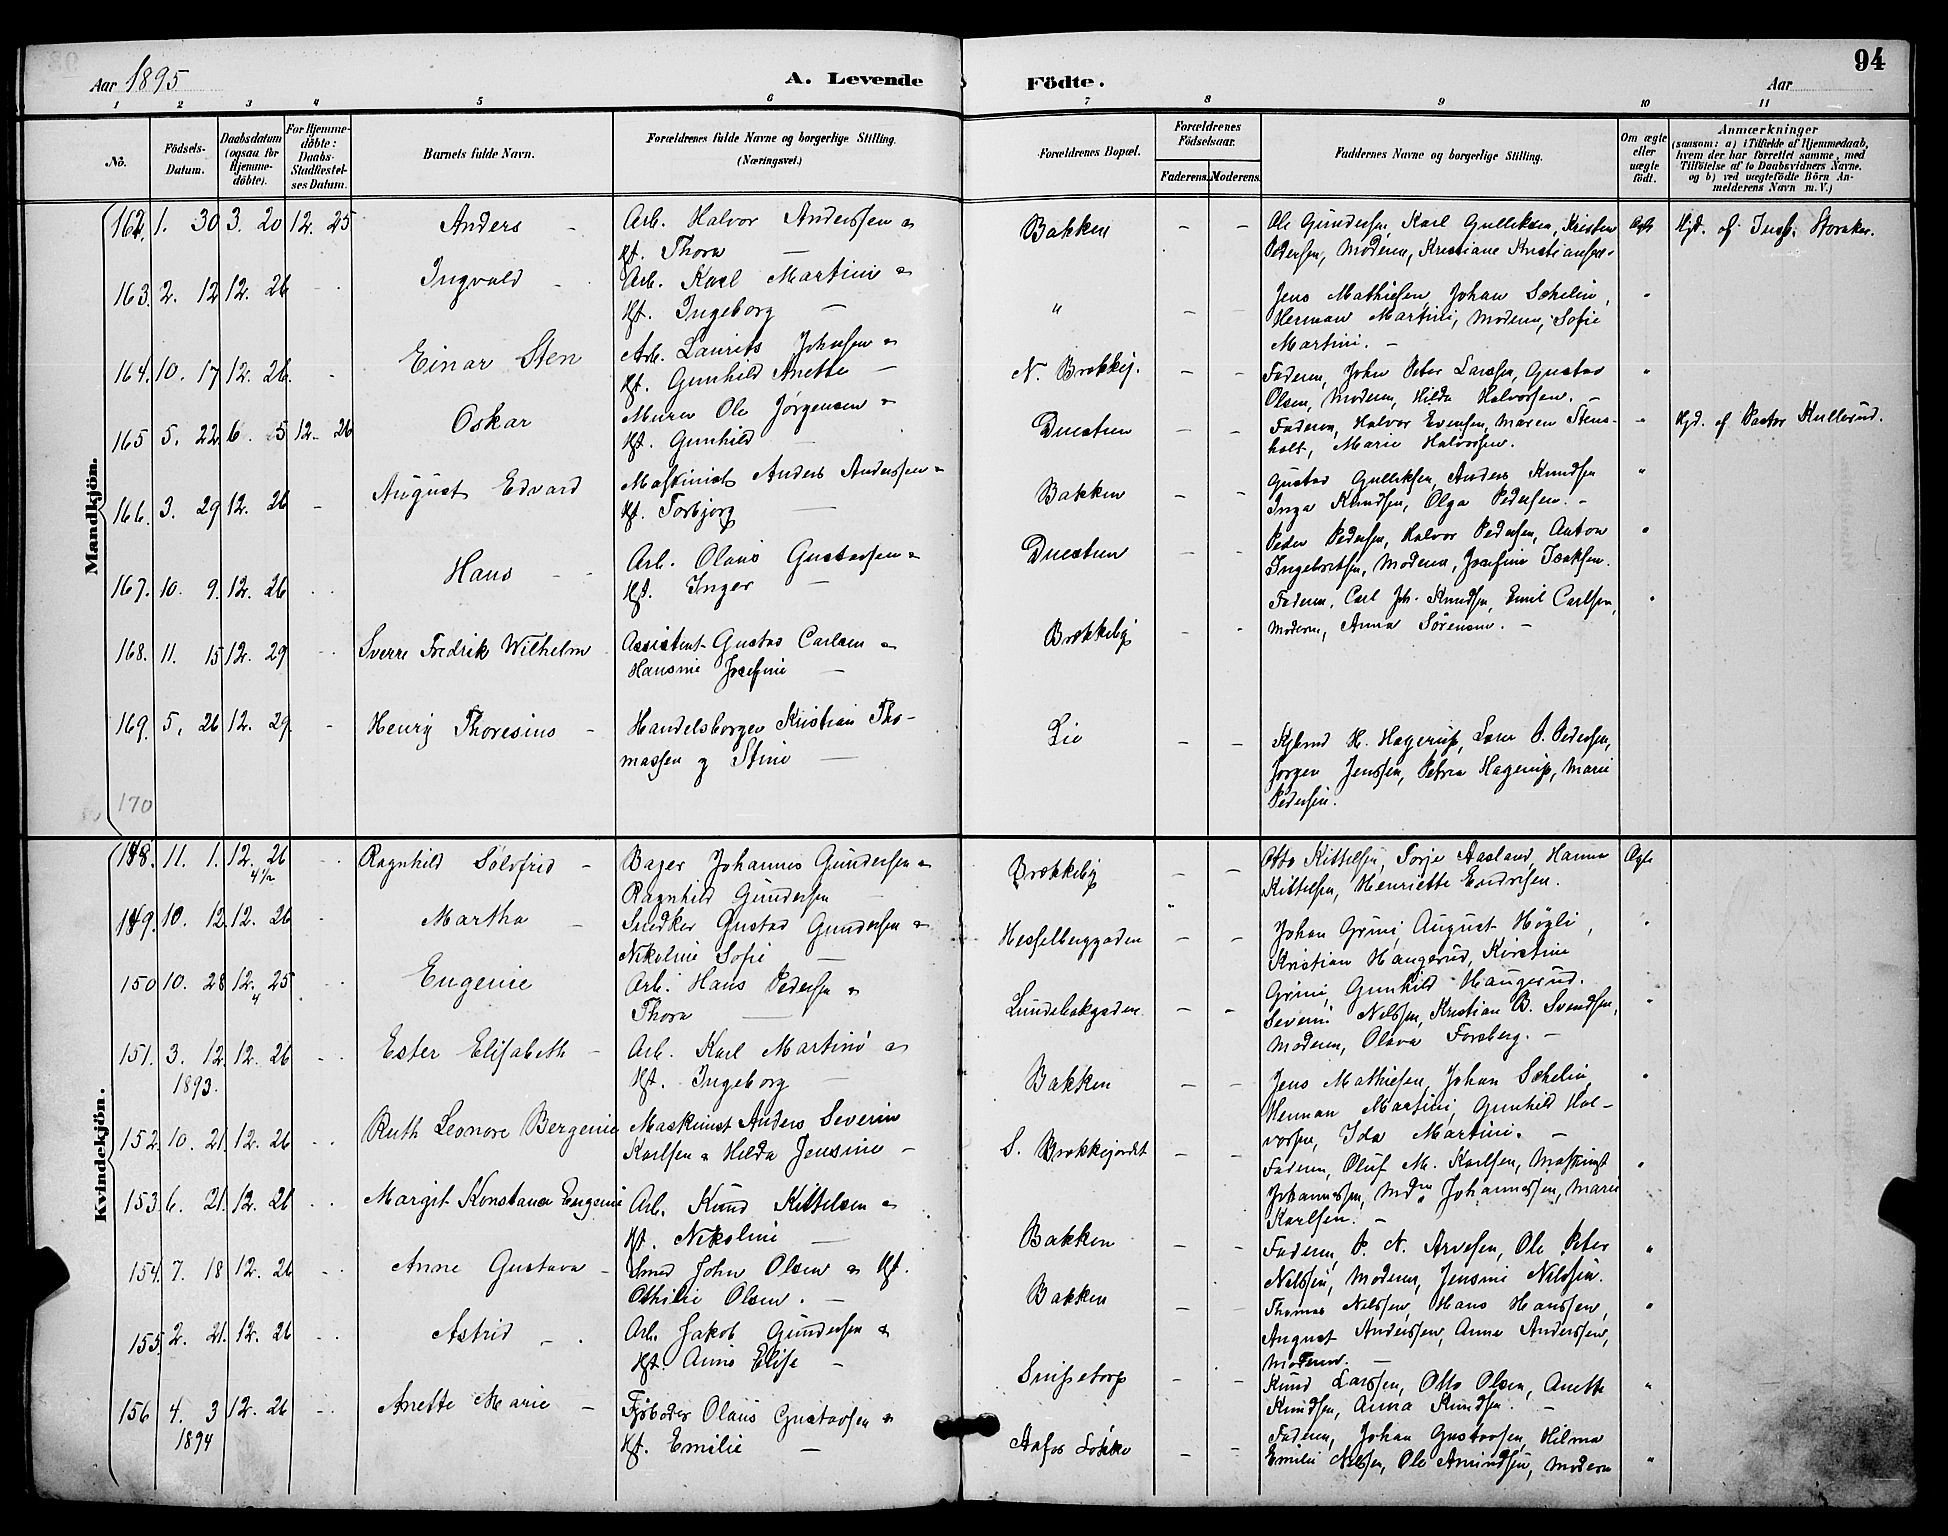 94
Aar 1895
A. Levende
Födte.
Aar
1 2 3 4 5 6 7 8 9 10 11
No.
Födsels-Datum.
Daabsdatum (ogsaa for Hjemmedöbte).
For Hjemmedöbte: Daabs-Stadfæstelses Datum.
Barnets fulde Navn.
Forældrenes fulde Navne og borgerlige Stilling. (Næringsvei.)
Forældrenes Bopæl.
Forældrenes Födselsaar.
Faderens. Moderens.
Faddernes Navne og borgerlige Stilling.
Om ægte eller uægte födt.
Anmærkninger
(saasom: a) i Tilfælde af Hjemmedaab, hvem der har forrettet samme, med Tilföielse af to Daabsvidners Navne, og b) ved uægtefödte Börn Anmelderens Navn m. V.)
Mandkjön.
162. 1. 30 3. 20 12. 25 Anders - Arb. Halvor Anderssen &
Hst. Thora - Bakken - - Ole Gundersen, Karl Gulliksen, Kristen
Pedersen, Moderen, Kristiane Kristiansen. Ægte Hjd. af Jusb. Storaker.
163. 2. 12 12. 26 Ingvald - Arb. Karl Martini &
Hst. Ingeborg - " - - Jens Mathiesen, Johan Schelin,
Herman Martini, Moderen, Sofie
Martini. - "
164. 10. 17 12. 26. - Einar Sten Arb. Laurits Johnsen &
Hst. Gunhild Anette - N. Brekkej. - - Faderen, John Peter Larssen, Gustav
Olsen, Moderen, Hilda Halvorsen. - "
165 5. 22 6. 5 12. 26 Oskar Murer Ole Jørgensen &
Hst. Gunhild - Duestien - - Faderen, Halvor Evensen, Maren Stens-
holt, Marie Halvorsen. " Hjd. af Pastor Kullerud.
166. 3. 29 12. 26 - August Edvard Maskinist Anders Anderssen &
Hst. Torbjorg - Bakken - - Gustav Gulliksen, Anders Knudsen
Inga Knudsen, Olga Pedersen. - "
167. 10. 9. 12. 26 Hans - - Arb. Olaus Gustavsen &
Hst. Inger - Duestien - - Peder Pedersen, Halvor Pedersen, Anton
Ingebretsen, Moderen, Josefine Isaksen. "
168. 11. 15 12. 29 Sverre Fredrik Wilhelm Assistent Gustav Carlsen &
Hansine Josefine - Brekkeby - - Faderen, Carl Joh. Knudsen, Emil Carlsen,
Moderen, Anna Sørensen. - "
169. 5. 26 12. 29. - Henry Thoresius - Handelsborger Kristian Tho-
massen og Stine - Lie - - H. Hagerup, P. Pedersen,
Jørgen Jenssen, Petra Hagerup, Marie
Pedersen.
170
Kvindekjön.
148. 11. 1. 12. 26 Ragnhild Sölvfrid - Bager Johannes Gundersen &
4½ Ragnhild Gundersen Brekkeby - - Otto Kittelsen, Torje Aasland, Hanna
Kittelsen, Henriette Endresen. Ægte
149. 10. 12. 12. 26 - Martha - Snedker Gustav Gundersen &
Nikoline Sofie - Hesselberggaden - - Johan Grini, August Høgli,
Kristian Haugerud, Kirstine
Grini, Gunhild Haugerud. "
150 10. 28 12. 25 Eugenie Arb. Hans Pedersen &
4 Thora - Lundebakgaden - - Severin Nilssen, Kristian B. Svendsen,
Moderen, Olava Forsberg. - "
151. 3. 12 12. 26 Ester Elisabeth - Arb. Karl Martini &
1893. Hst. Ingeborg Bakken - - Jens Mathiesen, Johan Schelin
Herman Martini, Gunhild Hal-
vorsen, Ida Martini. - "
152. 10. 21. 12. 26 Ruth Leonore Bergenie Maskinist Anders Severin
Karlsen & Hilda Jensine - S. Brekkejordet - - Faderen, Oluf M. Karlsen, Maskinist
Johannessen, Md. Johannessen, Marie
Karlsen. - "
153. 6. 21. 12. 26 Margit Konstance Eugenie Arb. Knud Kittilsen &
Hst. Nikoline - Bakken - - Faderen, P. N. Arvesen, Ole Peter
Nilssen, Moderen, Jensine Nilssen. "
154. 7. 18 12. 26 Anne Gustava - Smed John Olsen & Hst.
Othilie Olsen. - Bakken - - Thomas Nilssen, Hans Hanssen,
August Anderssen, Anna Anderssen,
Moderen. - "
155. 2. 21. 12. 26 Astrid - Arb. Jakob Gundersen &
Hst. Anne Elise - Snipetorp - - Knud Larssen, Otto Olsen, Anette
Knudsen, Anna Knudsen. - "
156 4. 3 12. 26 Anette Marie - Fjøsbøder Olaus Gustavsen &
1894 Hst. Emilie - Aafos Løkke - - Faderen, Johan Gustavsen, Hilma
Emilie Nilssen, Ole Amundsen, Moderen "